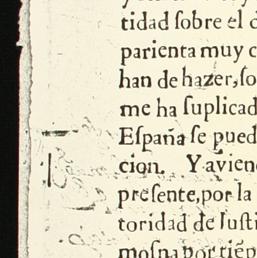 tidad ſobre el d
parienta muy c
han de hazer, ſo
me ha ſuplicad
Eſpaña ſe pued
cion. Y avien
preſente, por la
toridad de Iuſti
moſna por tiẽp